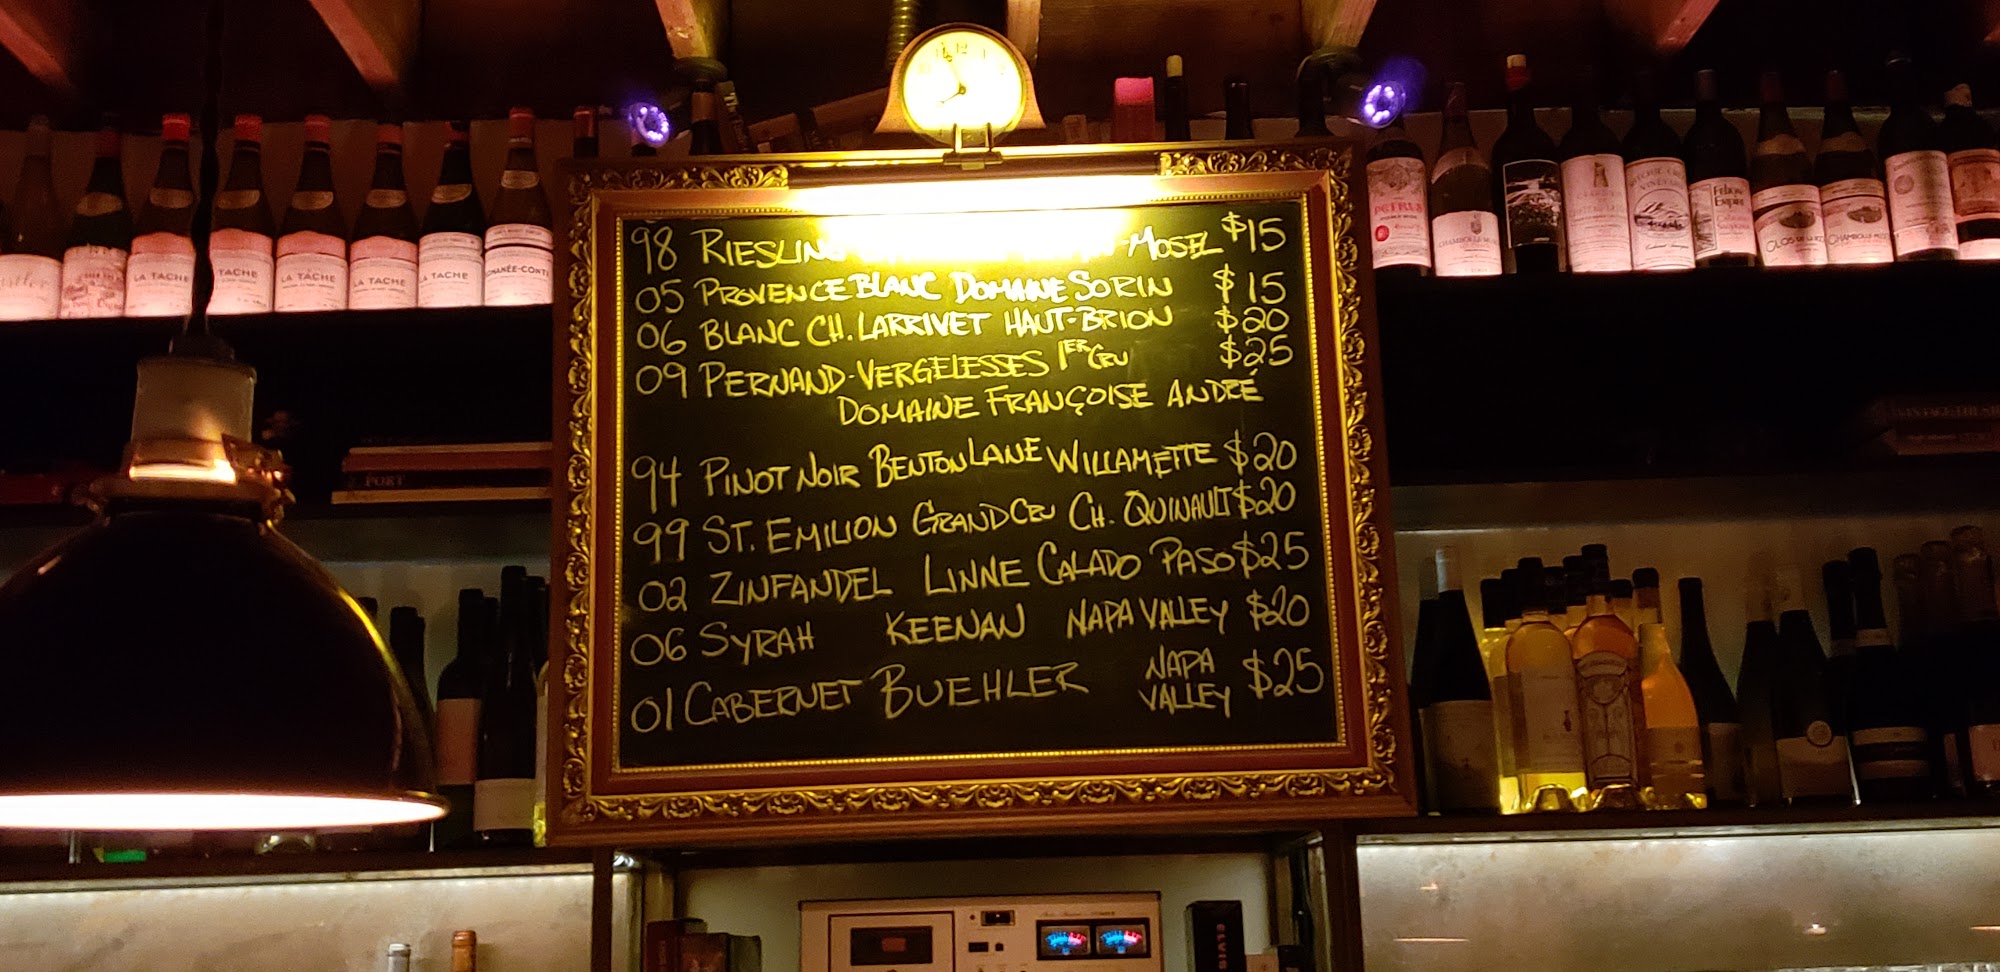 98 RIESLING MOSEL $15
05 PROVENCE BLANC DOMAINE SORIN $15
06 BLANC CH. LARRIVET HAUT-BRION $20
09 PERNAND-VERGELESSES 1ER CRU $25
DOMAINE FRANÇOISE ANDRÉ
94 PINOT NOIR BENTON LANE WILLAMETTE $20
99 ST. EMILION GRAND CRU CH. QUINAULT $20
02 ZINFANDEL LINNE CALADO PASO $25
06 SYRAH KEENAN NAPA VALLEY $20
01 CABERNET BUEHLER NAPA VALLEY $25
LA TACHE
TACHE
LA TACHE
LA TACHE
LA TACHE
ROMANÉE-CONTI
PETRUS
PORT